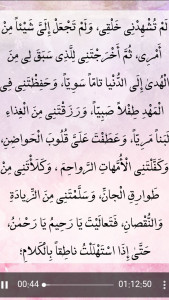 لَمْ تُشْهِدْنِي خَلْقِي، وَلَمْ تَجْعَلْ إِلَيَّ شَيْئاً مِنْ
أَمْرِي، ثُمَّ أَخْرَجْتَنِي لِلَّذِي سَبَقَ لِي مِنَ
الْهُدَىٰ إِلَى الدُّنْيَا تَامّاً سَوِيّاً، وَحَفِظْتَنِي فِي
الْمَهْدِ طِفْلاً صَبِيّاً، وَرَزَقْتَنِي مِنَ الْغِذَاءِ
لَبَناً مَرِيّاً، وَعَطَفْتَ عَلَيَّ قُلُوبَ الْحَوَاضِنِ،
وَكَفَّلْتَنِي الْأُمَّهَاتِ الرَّوَاحِمَ، وَكَلَأْتَنِي مِنْ
طَوَارِقِ الْجَانِّ، وَسَلَّمْتَنِي مِنَ الزِّيَادَةِ
وَالنُّقْصَانِ، فَتَعَالَيْتَ يَا رَحِيمُ يَا رَحْمٰنُ،
حَتَّىٰ إِذَا اسْتَهْلَلْتُ نَاطِقاً بِالْكَلَامِ؛
00:44 01:12:50